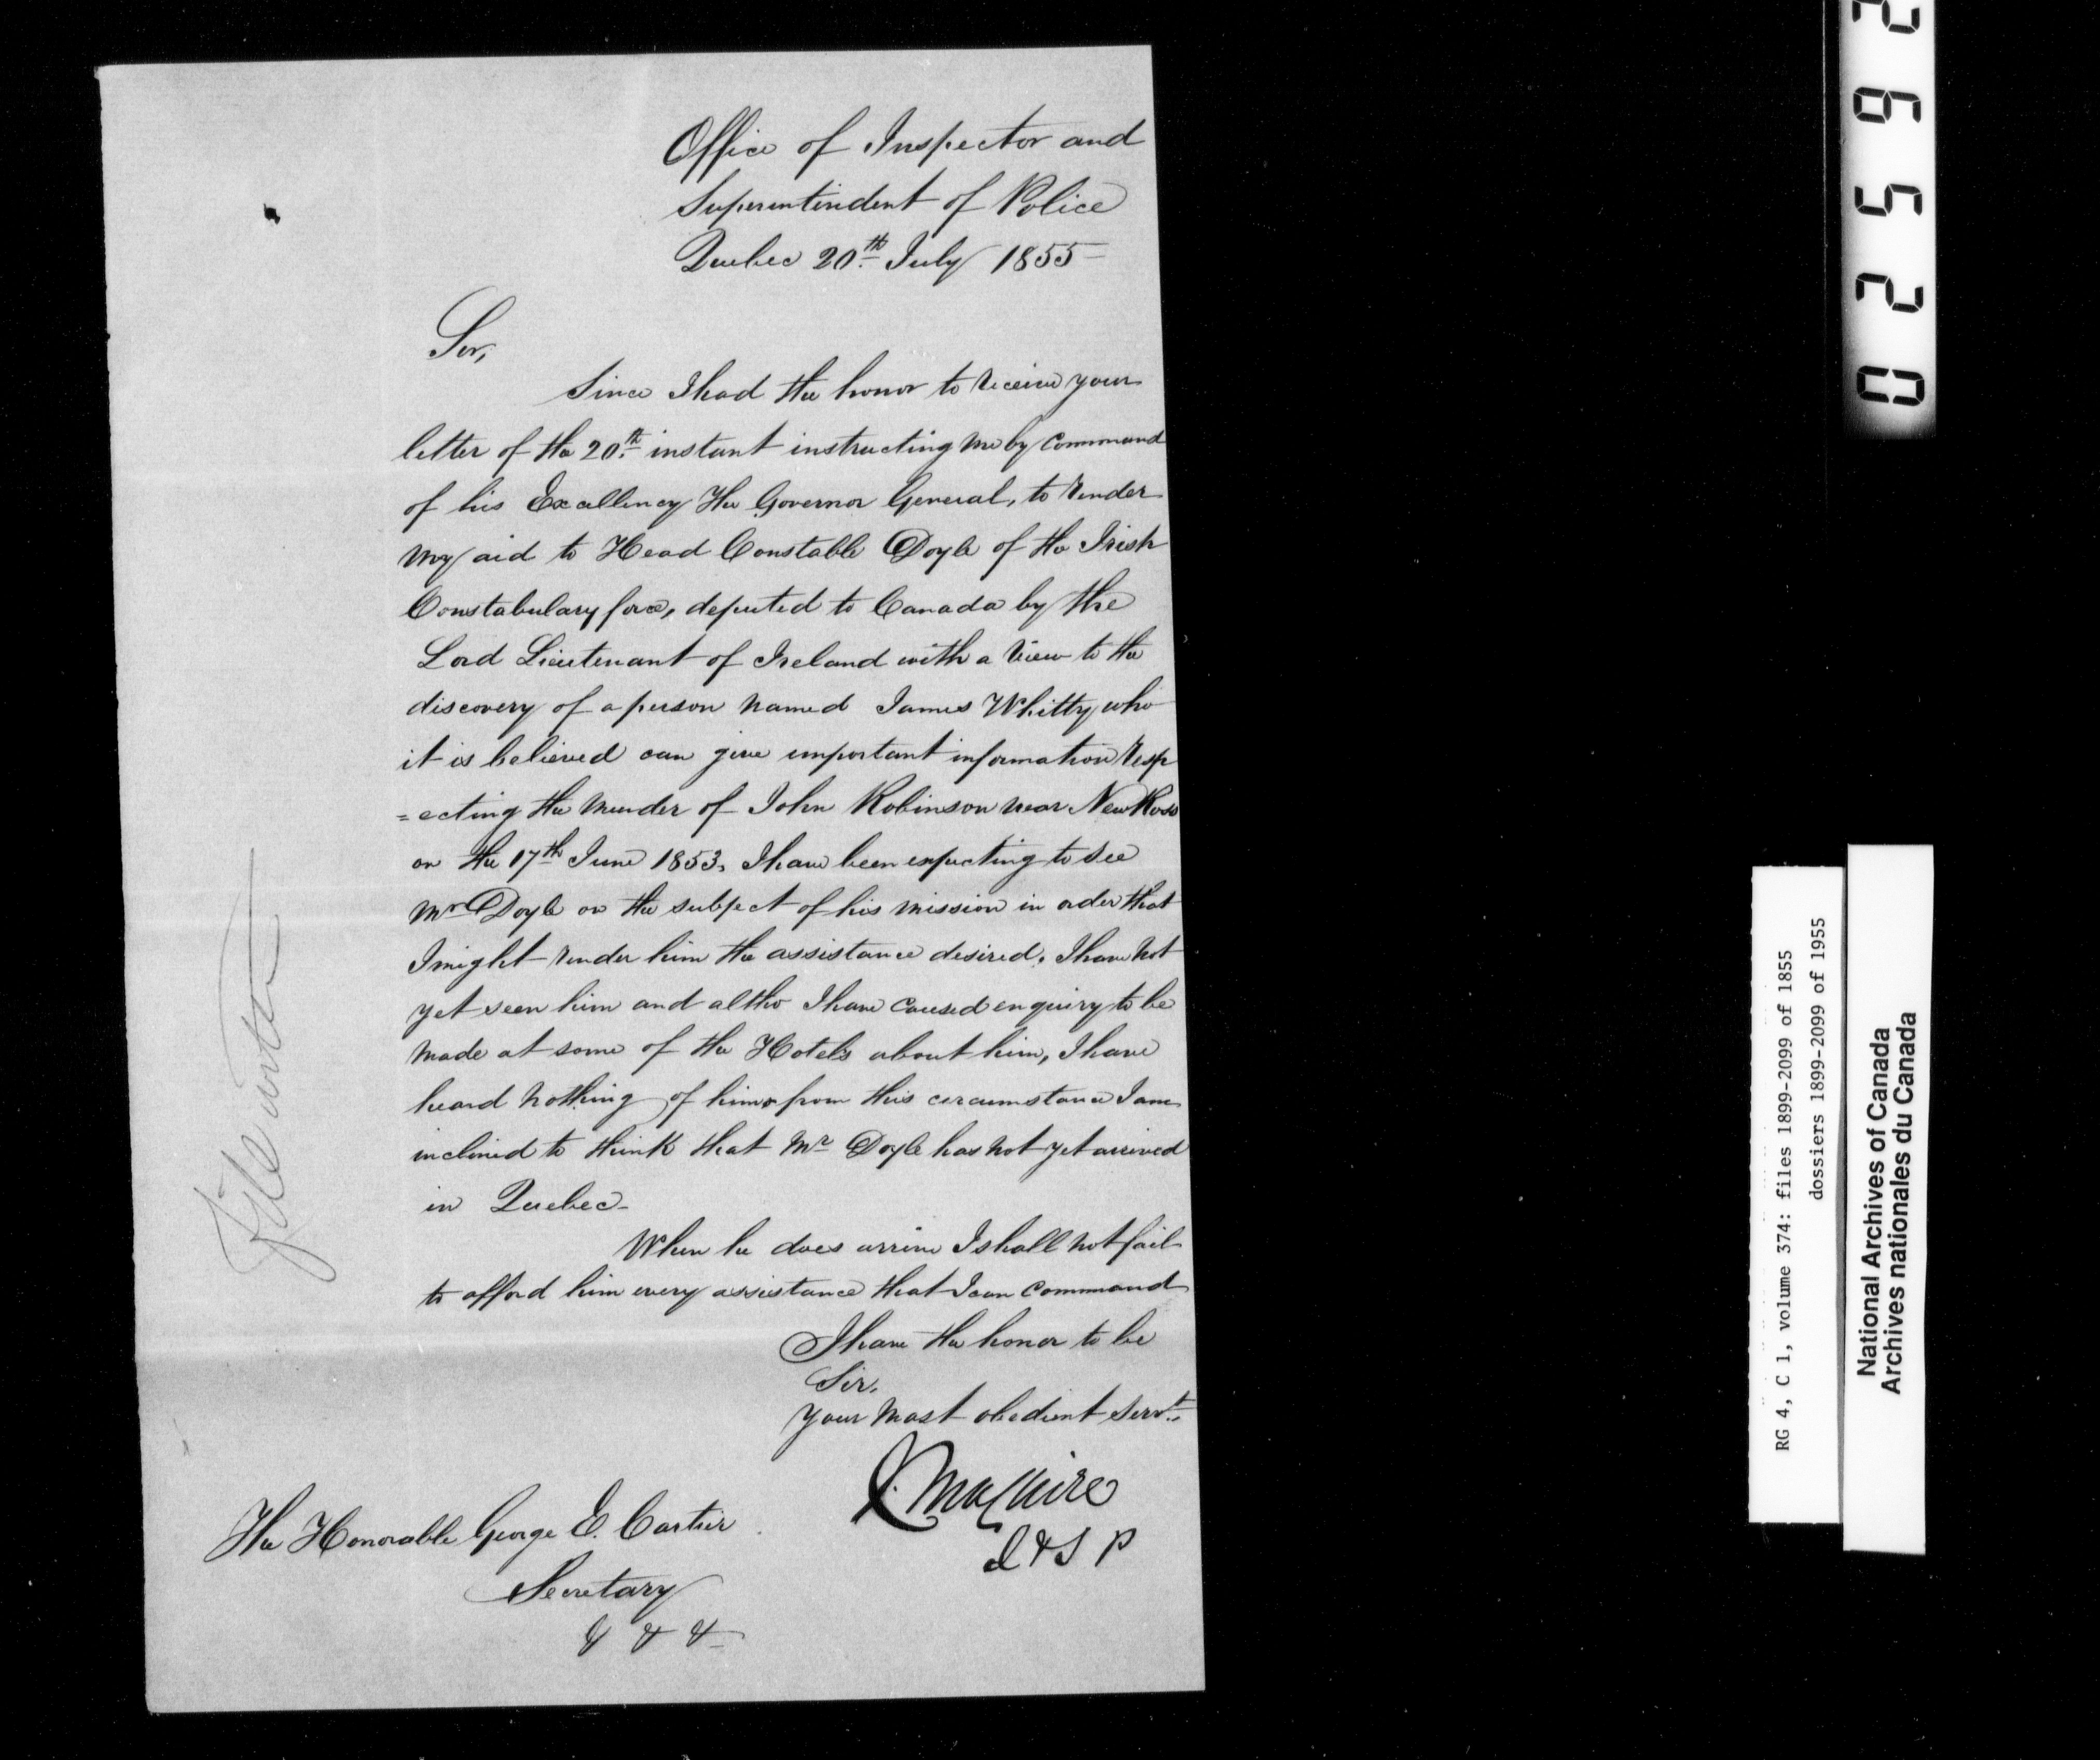 Office of Inspector and
Superintindent of Police
Quebec 20th July 1855
Sir,
Since I had the honor to receive your
letter of the 20th instant instructing me by Command
of his Excellency The Governor General, to render
my aid to Head Constable Doyle of the Irish
Constabulary force, deputed to Canada by the
Lord Lieutenant of Ireland with a view to the
discovery of a person named James Whitty who
it is believed can give important information resp
=ecting the murder of John Robinson near New Ross
on the 17th June 1853, I have been expecting to see
Mr Doyle on the subject of his mission in order that
I might render him the assistance desired. I have not
yet seen him and altho I have caused enquiry to be
made at some of the Hotels about him, I have
heard nothing of him & from this circumstance I am
inclined to think that Mr Doyle has not yet arrived
in Quebec-
When he does arrive I shall not fail
to afford him every assistance that I can command
I have the honor to be
Sir,
Your most obedient Servt.
J. Maguire
I & S P
The Honorable George E. Cartier
Secretary
& & &
Fyle
02592
RG 4, C 1, volume 374: files 1899-2099 of 1855
dossiers 1899-2099 of 1955
National Archives of Canada
Archives nationales du Canada